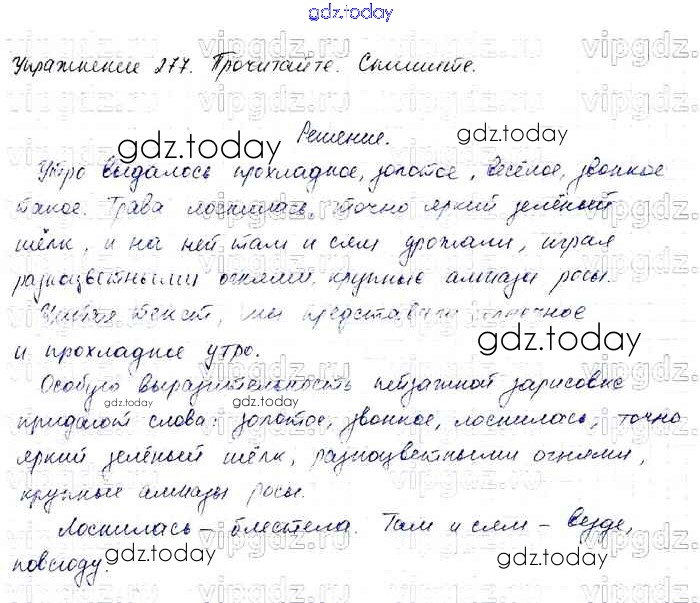 gdz.today
Упражнение 277. Прочитайте. Спишите.
Решение.
Утро выдалось прохладное, золотое, весёлое, звонкое
такое. Трава лоснилась, точно яркий зелёный
шёлк, и на ней там и сям дрожали, играя
разноцветными огнями, крупные алмазы росы.
Читая текст, мы представили солнечное
и прохладное утро.
Особую выразительность пейзажной зарисовке
придают слова: золотое, звонкое, лоснилась, точно
яркий зелёный шёлк, разноцветными огнями,
крупные алмазы росы.
Лоснилась – блестела. Там и сям – везде,
повсюду.